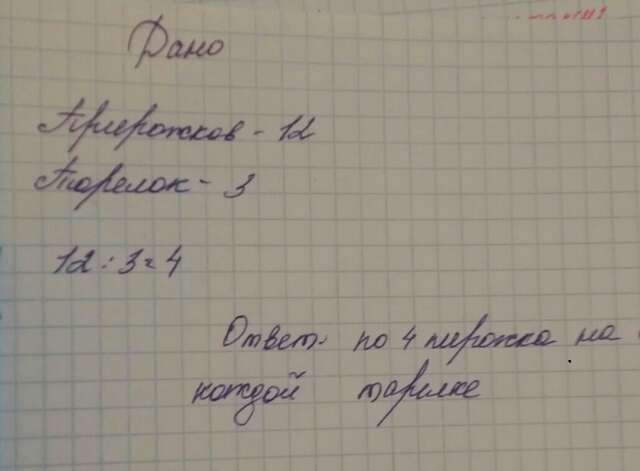 Дано
Пирожков - 12
Тарелок - 3
12 : 3 = 4
Ответ: по 4 пирожка на
каждой тарелке